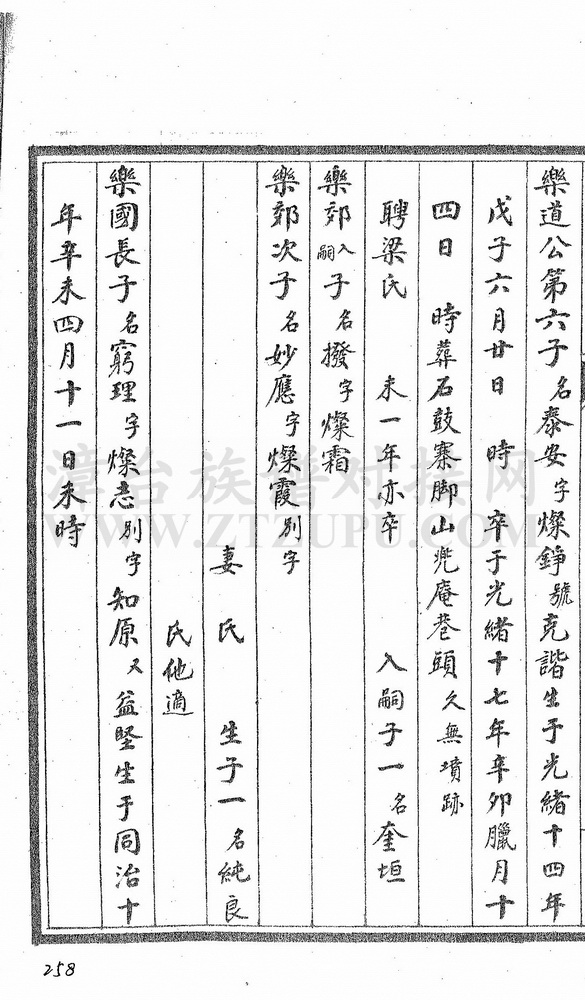 樂道公第六子名泰安字燦錚號克諧生于光緒十四年
戊子六月廿日　時　卒于光緒十七年辛卯臘月十
四日　時葬石鼓寨脚山兜庵巷頭久無墳跡
聘梁氏　未一年亦卒　入嗣子一名奎垣
樂郊入嗣子名撥字燦霜
樂郊次子名妙應字燦霞別字
妻　氏　生子一名純良
氏他適
樂國長子名窮理字燦志別字知原又益堅生于同治十
年辛未四月十一日未時
漳台族譜对接网
WWW.ZTZUPU.COM
258